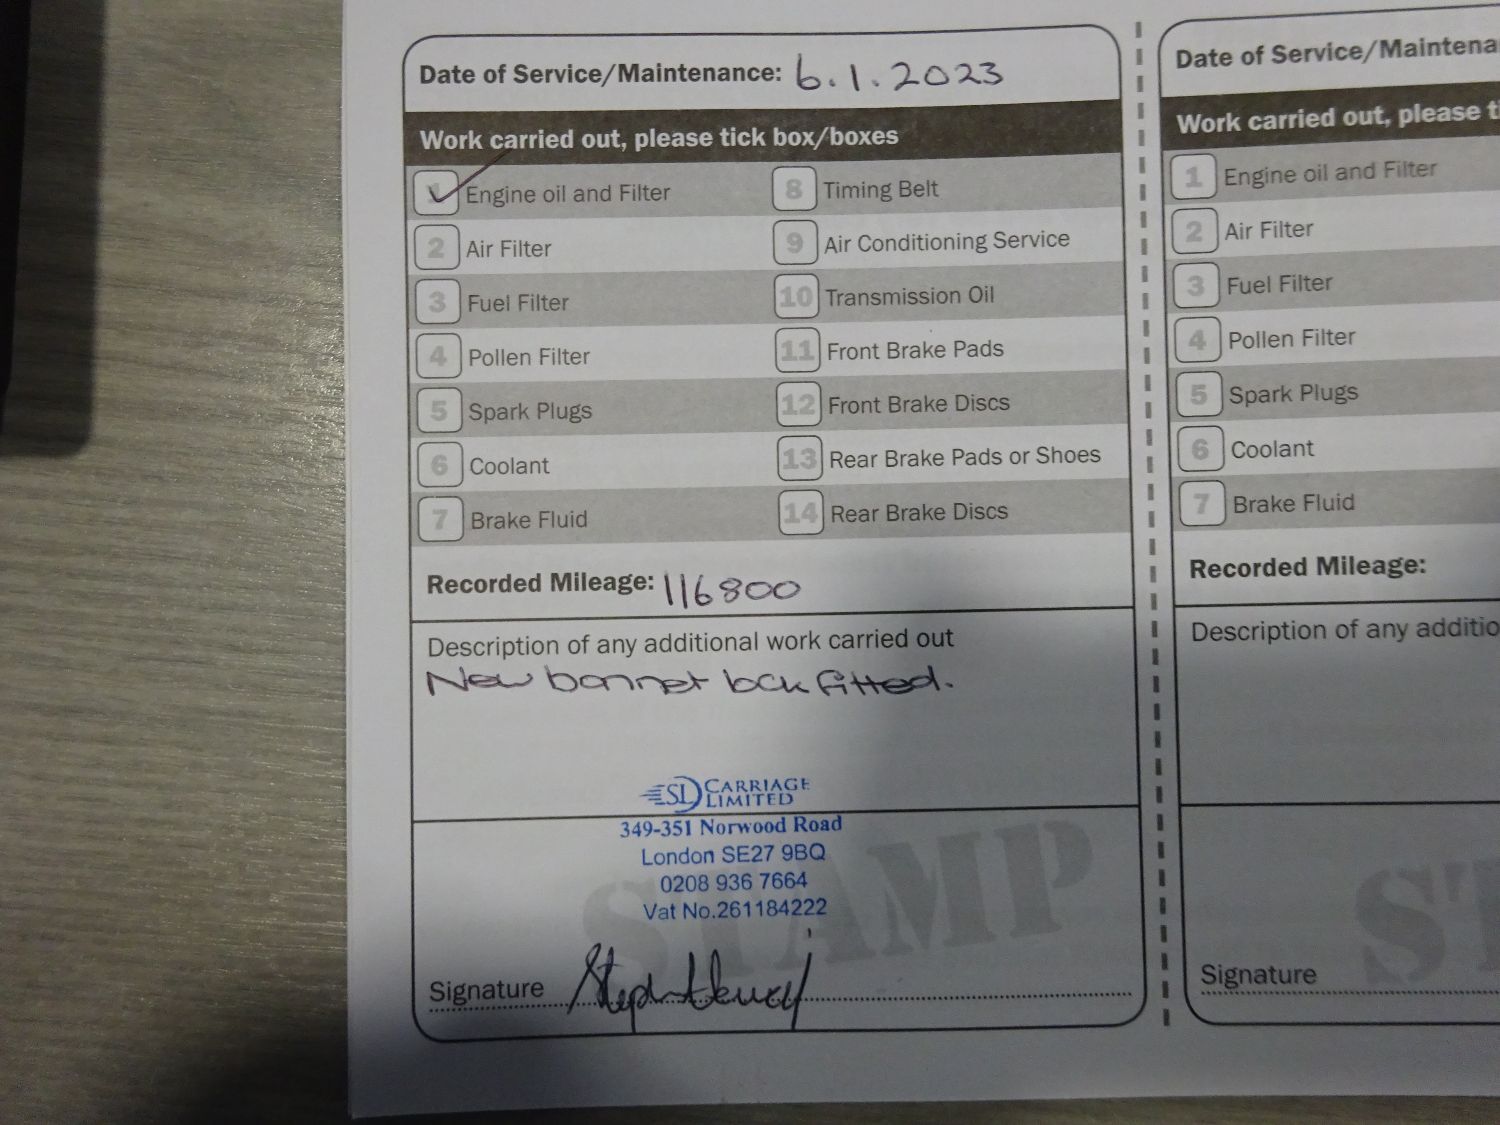 Date of Service/Maintenance: 6.1.2023
Work carried out, please tick box/boxes
1 Engine oil and Filter
2 Air Filter
3 Fuel Filter
4 Pollen Filter
5 Spark Plugs
6 Coolant
7 Brake Fluid
8 Timing Belt
9 Air Conditioning Service
10 Transmission Oil
11 Front Brake Pads
12 Front Brake Discs
13 Rear Brake Pads or Shoes
14 Rear Brake Discs
Recorded Mileage: 116800
Description of any additional work carried out
New bonnet lock fitted.
SL CARRIAGE
LIMITED
349-351 Norwood Road
London SE27 9BQ
0208 936 7664
Vat No.261184222
STAMP
Signature
Date of Service/Maintena
Work carried out, please t
1 Engine oil and Filter
2 Air Filter
3 Fuel Filter
4 Pollen Filter
5 Spark Plugs
6 Coolant
7 Brake Fluid
Recorded Mileage:
Description of any additio
ST
Signature